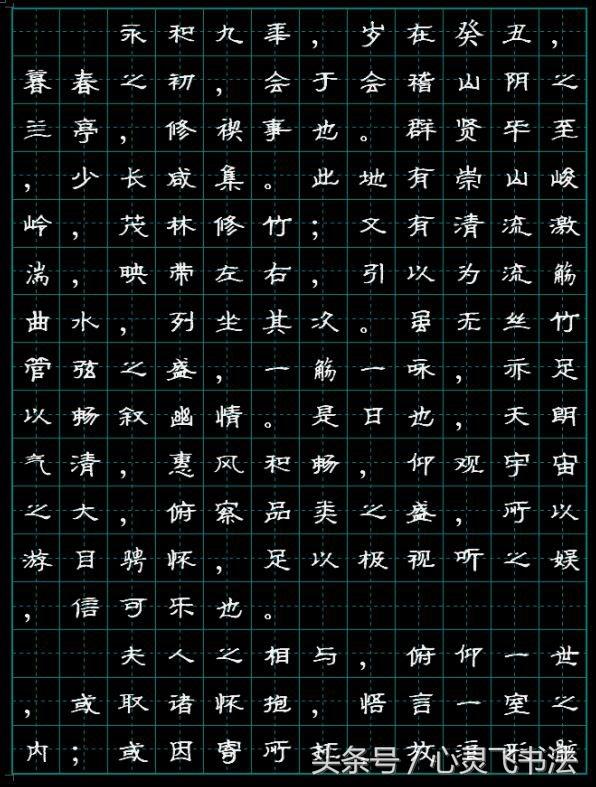 永和九年，岁在癸丑，
暮春之初，会于会稽山阴之
兰亭，修禊事也。群贤毕至
，少长咸集。此地有崇山峻
岭，茂林修竹；又有清流激
湍，映带左右，引以为流觞
曲水，列坐其次。虽无丝竹
管弦之盛，一觞一咏，亦足
以畅叙幽情。是日也，天朗
气清，惠风和畅，仰观宇宙
之大，俯察品类之盛，所以
游目骋怀，足以极视听之娱
，信可乐也。
夫人之相与，俯仰一世
，或取诸怀抱，悟言一室之
内；或因寄所托，放浪形骸
头条号／心灵飞书法